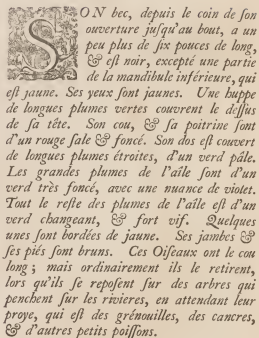 SON bec, depuis le coin de ſon
ouverture juſqu'au bout, a un
peu plus de ſix pouces de long,
& eſt noir, excepté une partie
de la mandibule inférieure, qui
eſt jaune. Ses yeux ſont jaunes. Une huppe
de longues plumes vertes couvrent le deſſus
de ſa tête. Son cou, & ſa poitrine ſont
d'un rouge ſale & foncé. Son dos eſt couvert
de longues plumes étroites, d'un verd pâle.
Les grandes plumes de l'aîle ſont d'un
verd très foncé, avec une nuance de violet.
Tout le reſte des plumes de l'aîle eſt d'un
verd changeant, & fort vif. Quelques
unes ſont bordées de jaune. Ses jambes &
ſes piés ſont bruns. Ces Oiſeaux ont le cou
long ; mais ordinairement ils le retirent,
lors qu'ils ſe repoſent ſur des arbres qui
penchent ſur les rivieres, en attendant leur
proye, qui eſt des grénouilles, des cancres,
& d'autres petits poiſſons.